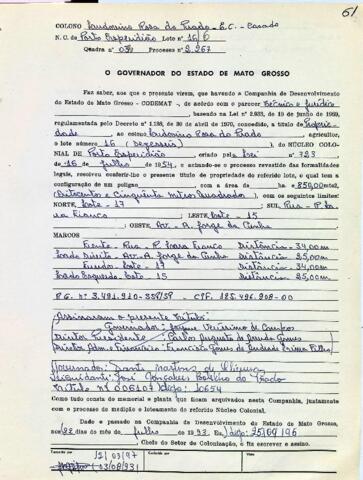 51
COLONO Laudosino Rosa do Prado - E.C. - Casado
N. C. de Porto Esperidião Lote nº 16
Quadra nº 039 Processo nº 2.267
O GOVERNADOR DO ESTADO DE MATO GROSSO
Faz saber, aos que o presente virem, que havendo a Companhia de Desenvolvimento
do Estado de Mato Grosso - CODEMAT -, de acôrdo com o parecer técnico e jurídico
, baseada na Lei nº 2.933, de 19 de junho de 1969,
regulamentada pelo Decreto nº 1.188, de 30 de abril de 1970, concedido, a título de Proprie-
dade ao colono Laudosino Rosa do Prado, agricultor,
o lote número 16 (Dezesseis) do NÚCLEO COLO-
NIAL DE Porto Esperidião, criado pela Lei nº 723
de 16 de julho de 1954, e achando-se o processo revestido das formalidades
legais, resolveu conferir-lhe o presente título de propriedade do referido lote, o qual tem a
configuração de um polígono com a área de ha e 850,00 mts2.
(Oitocentos e Cinquenta metros quadrados), com os seguintes limites:
NORTE, Lote - 17 ; SUL, Rua - P.
Franco ; LESTE, Lote - 15
; OESTE, Av - A. Jorge da Cunha
MARCOS
Frente - Rua - P. Franco Distância - 34,00m
Lado Direito - Av - A. Jorge da Cunha Distância - 25,00m
Fundos - Lote - 17 Distância - 34,00m
Lado Esquerdo - Lote - 15 Distância - 25,00m
Assinaram o presente título:
Governador: Jorque Veríssimo de Campos
Diretor Presidente: Carlos Augusto de Arruda Gomes
Governador: Dante Martins de Oliveira
Liquidante: José Gonçalves Botelho do Prado
Como tudo consta do memorial e planta que ficam arquivados nesta Companhia, juntamente
com o processo de medição e loteamento do referido Núcleo Colonial.
Dado e passado na Companhia de Desenvolvimento do Estado de Mato Grosso,
aos 22 dias do mês de julho de 1993. Eu
Chefe do Setor de Colonização, o fiz escrever e assino.